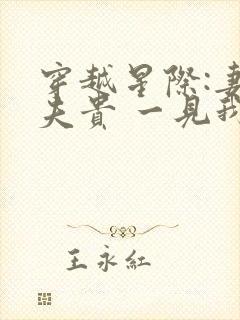 穿越星際:妻
夫貴 一見我
王永紅